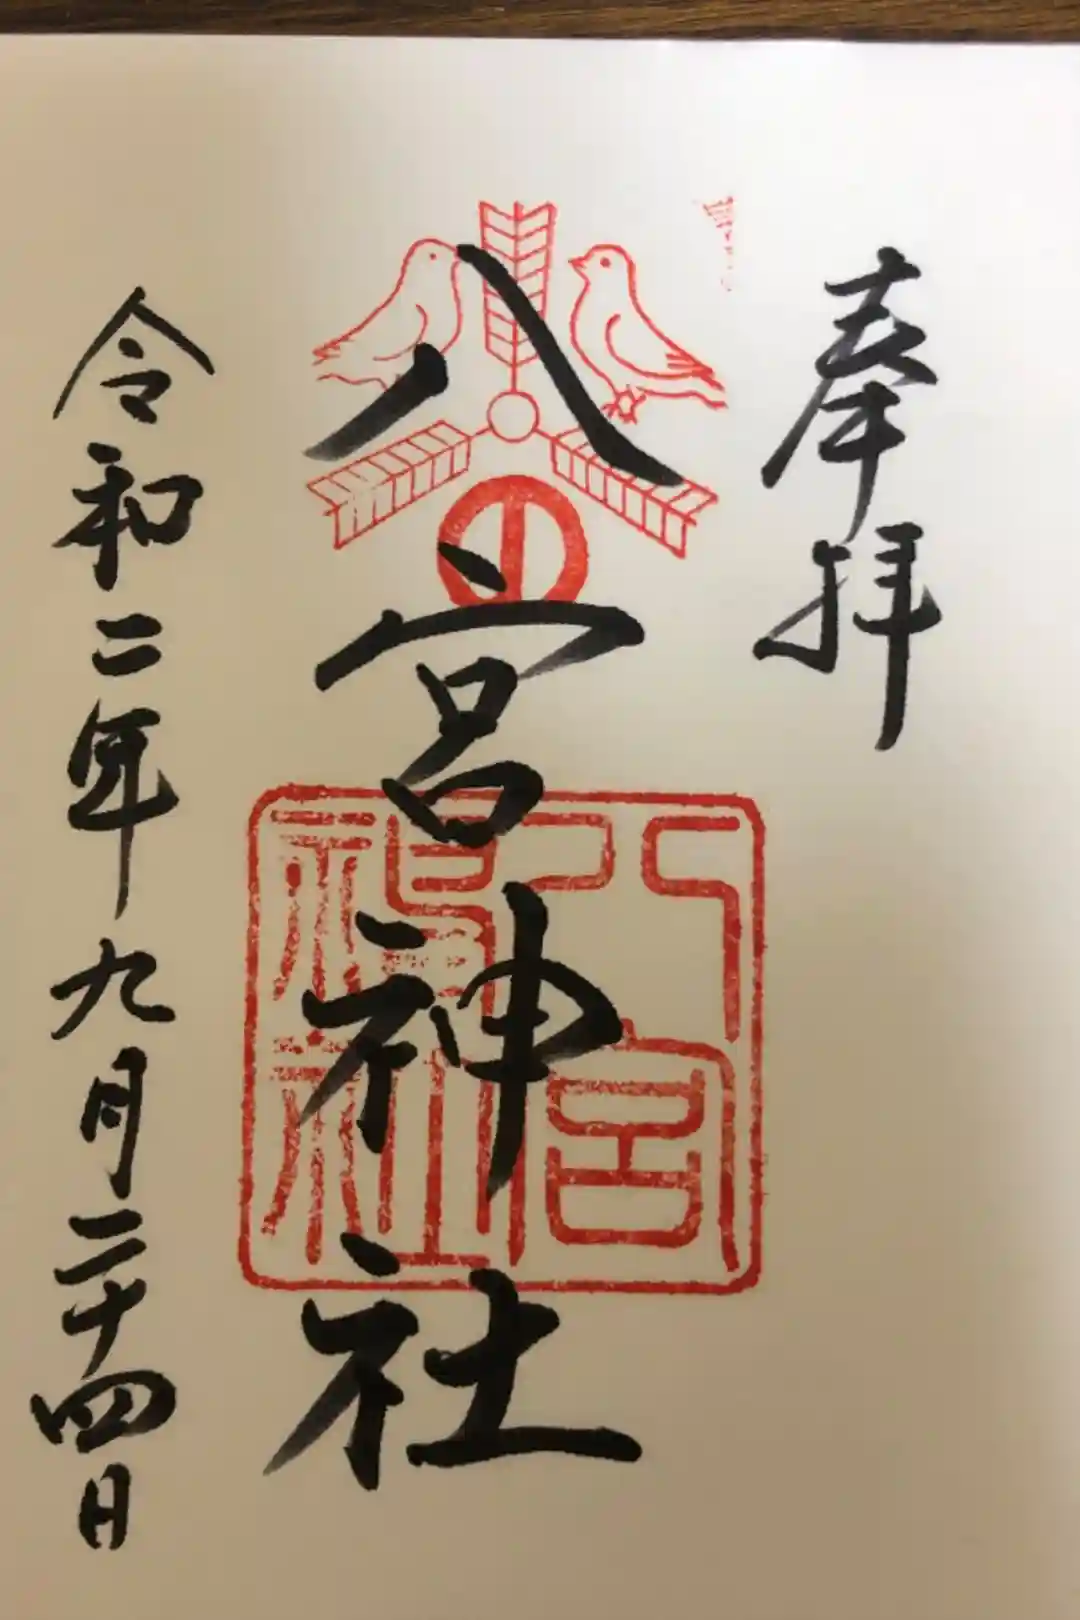 奉拝
八宮神社
令和二年九月二十四日
八宮神社